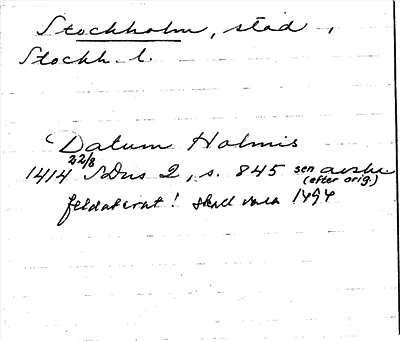 Stockholm, stad,
Stockh. l.
Datum Holmis
1414 22/8 SDns 2, s. 845 sen avskr.
(efter orig.)
feldaterat! skall vara 1494